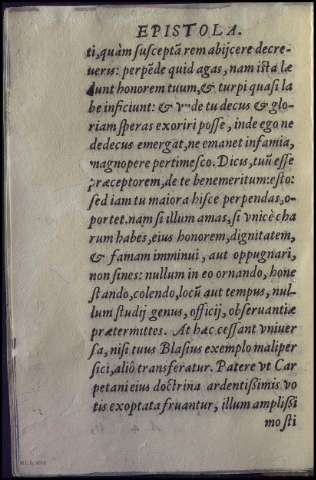 EPISTOLA.
ti, quàm susceptã rem abijcere decre-
ueris: perpẽde quid agas, nam ista læ
dunt honorem tuum, & turpi quasi la
be inficiunt: & vnde tu decus & glo-
riam speras exoriri posse, inde ego ne
dedecus emergat, ne emanet infamia,
magnopere pertimesco. Dicis, tuũ esse
præceptorem, de te benemeritum: esto:
sed iam tu maiora hisce perpendas, o-
portet. nam si illum amas, si vnicè cha
rum habes, eius honorem, dignitatem,
& famam imminui, aut oppugnari,
non sines: nullum in eo ornando, hone
stando, colendo, locũ aut tempus, nul-
lum studij genus, officij, obseruantiæ
prætermittes. At hæc cessant vniuer
sa, nisi tuus Blasius exemplo maliper
sici, aliò transferatur. Patere vt Car
petani eius doctrina ardentissimis vo
tis exoptata fruantur, illum amplissi
mo sti